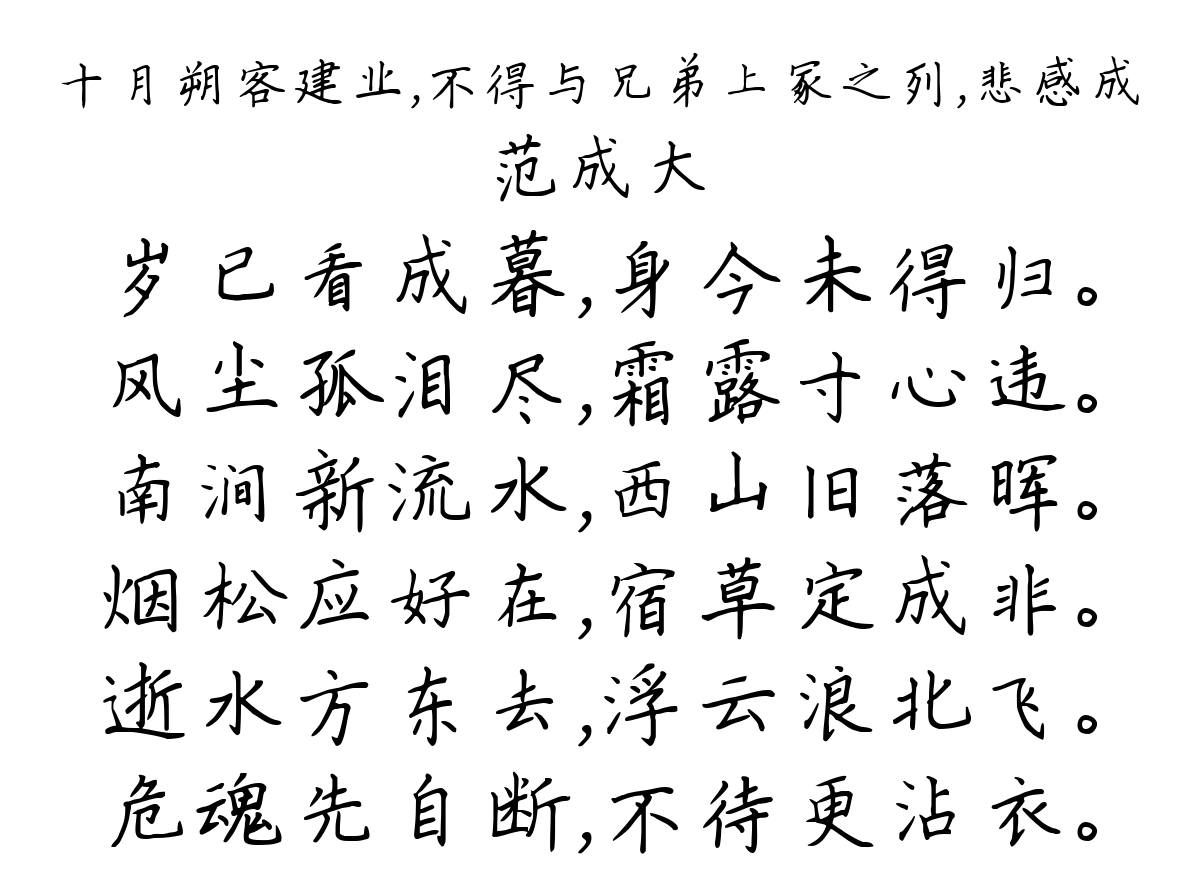 十月朔客建业,不得与兄弟上冢之列,悲感成
范成大
岁已看成暮,身今未得归。
风尘孤泪尽,霜露寸心违。
南涧新流水,西山旧落晖。
烟松应好在,宿草定成非。
逝水方东去,浮云浪北飞。
危魂先自断,不待更沾衣。